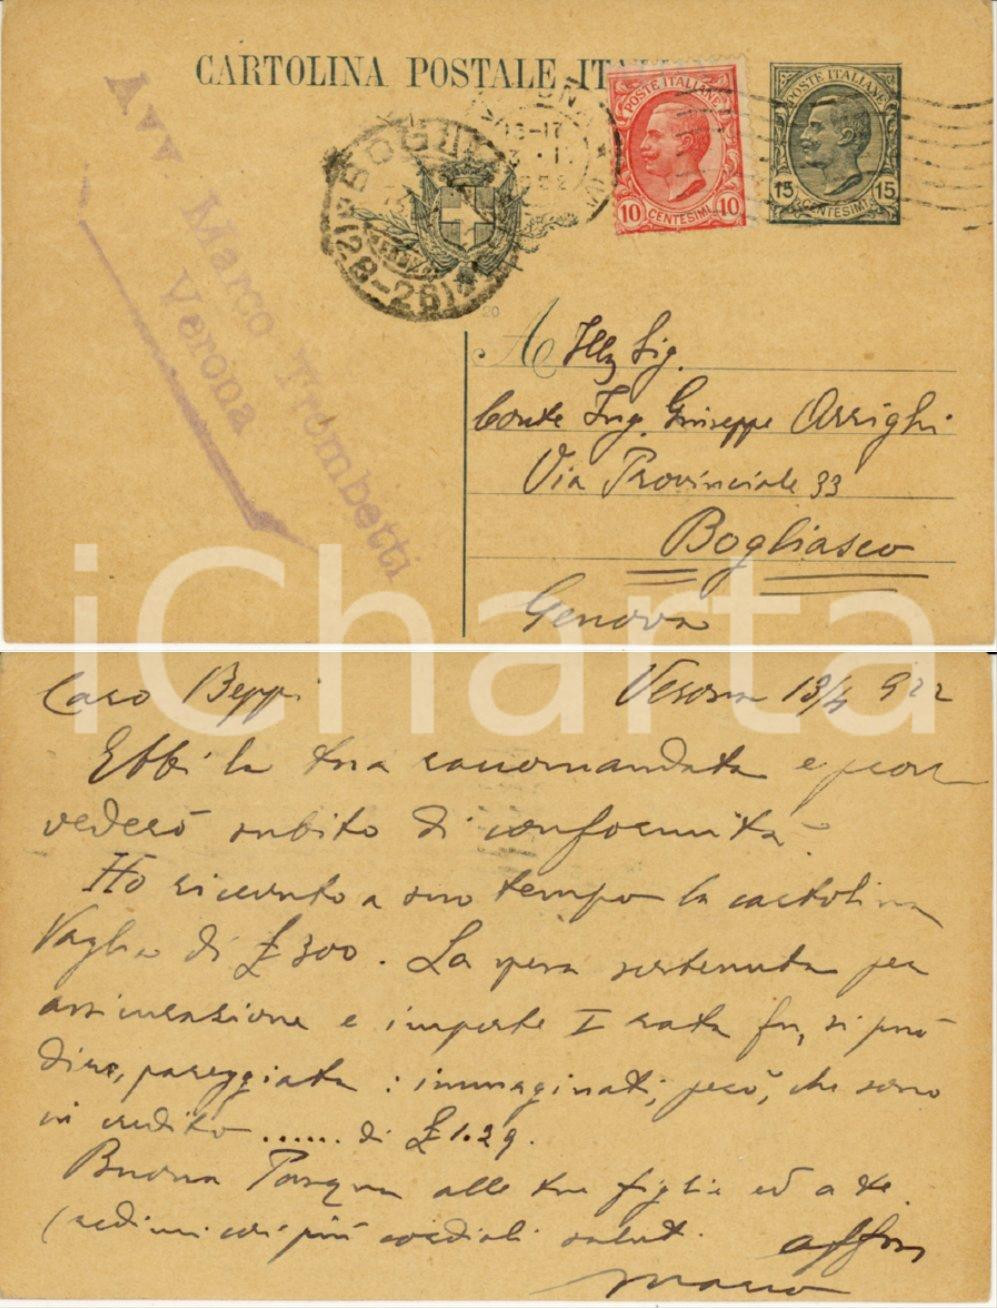 CARTOLINA POSTALE ITALIANA
Avv. Marco Trombetti
Verona
POSTE ITALIANE
10 CENTESIMI 10
POSTE ITALIANE
15 15
CENTESIMI
20
A Ill. Sig.
Conte Ing. Giuseppe Arrighi
Via Provinciale 33
Bogliasco
Genova
iCharta
Caro Beppi Verona 13/4 922
Ebbi la tua raccomandata e prov
vederò subito di conformità.
Ho ricevuto a suo tempo la cartolina
Vaglia di £ 300. La spesa sostenuta per
assicurazione e importo I rata fu, si può
dire, pareggiata: immaginati, però, che sono
in credito ...... di £ 1.29.
Buona Pasqua alle tue figlie ed a te.
credimi coi più cordiali saluti. aff
Marco